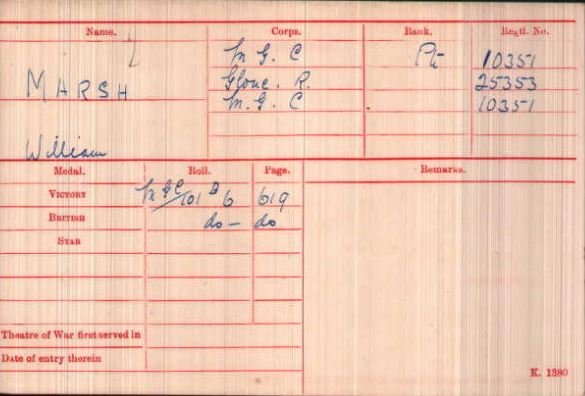 Name. Corps. Rank. Regtl. No.
M G C Pte 10351
MARSH Glouc. R. 25353
M. G. C 10351
William
Medal. Roll. Page. Remarks.
VICTORY M G C/101 B 6 619
BRITISH do — do
STAR
Theatre of War first served in
Date of entry therein
K. 1380